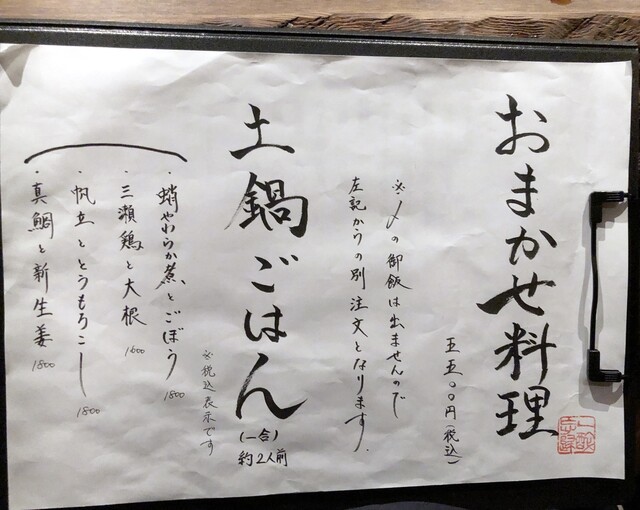 おまかせ料理
五五〇〇円(税込)
※〆の御飯は出ませんので
左記からの別注文となります.
土鍋ごはん
(一合)
約2人前
※税込表示です
・蛸やわらか煮とごぼう 1800
・三瀬鶏と大根 1600
・帆立ととうもろこし 1800
・真鯛と新生姜 1800